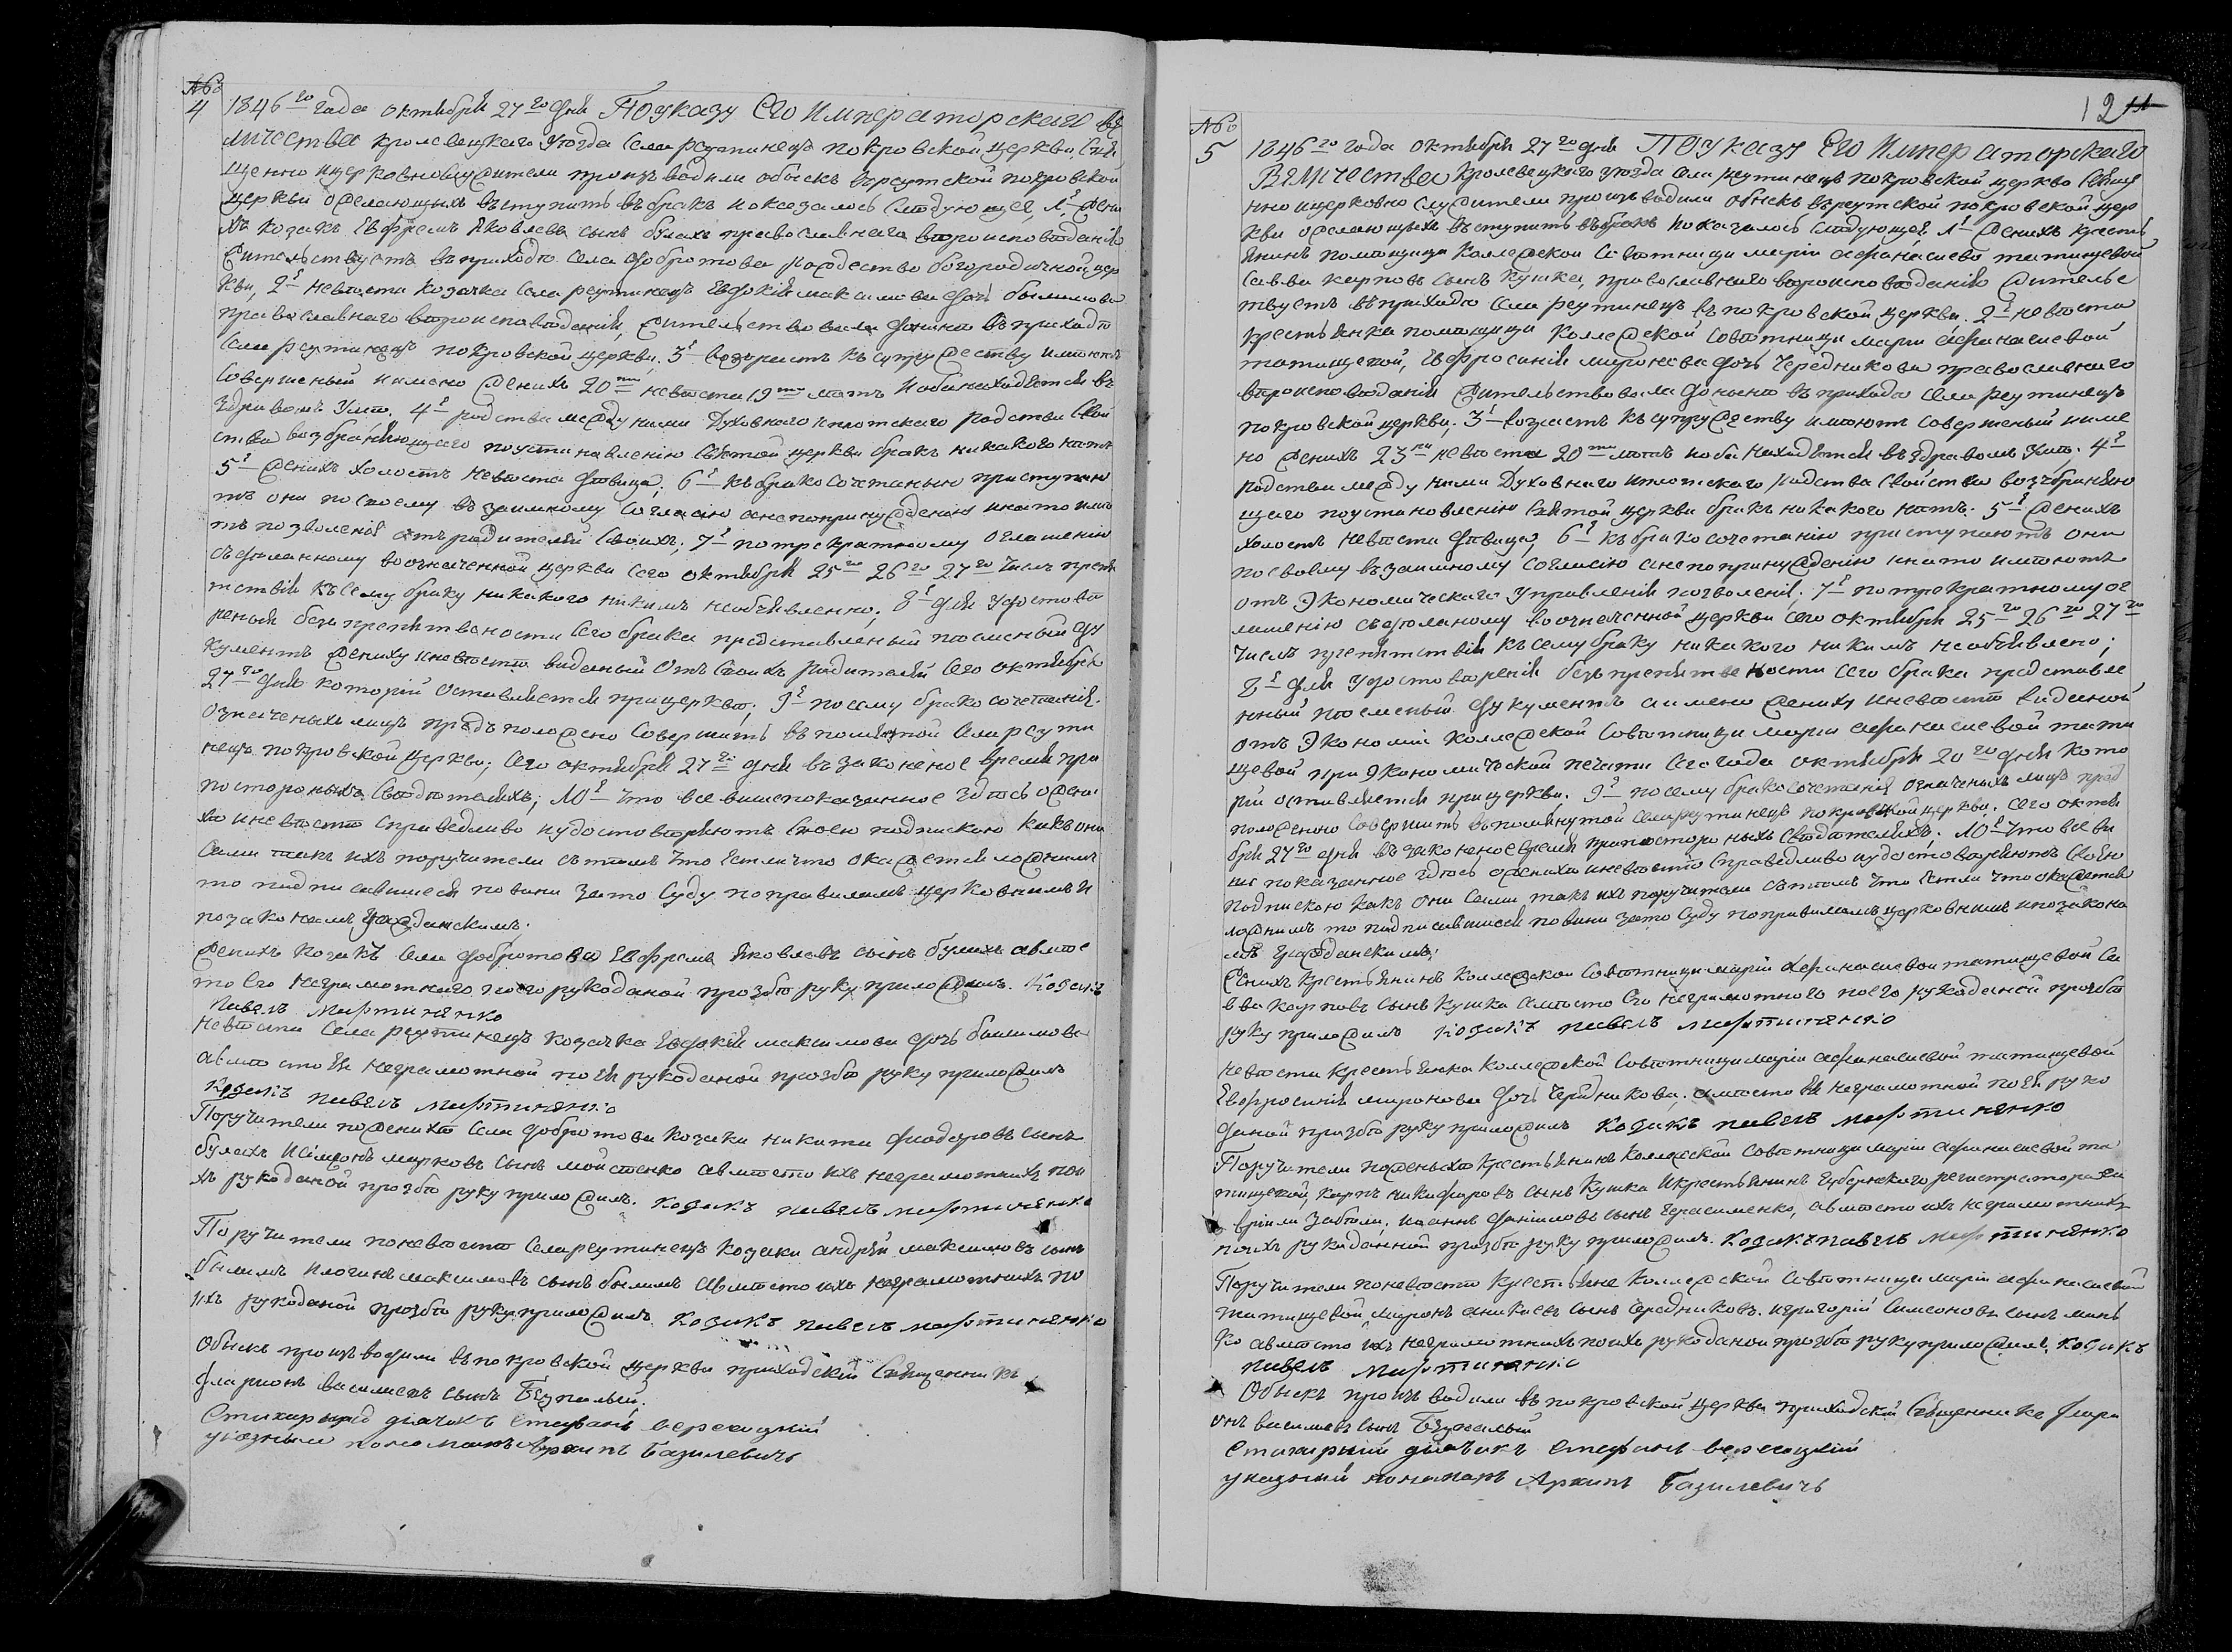 №
4
1846го года октября 27го дня По указу Его Императорскаго Ве
личества кролевецкаго уезда села реутинецъ покровской церкви, Свя
щенно ицерковнослужители производили обыскъ въреутской покровской
церкви ожелающихъ вступить въбракъ и оказалось следующее, 1е жени
хъ козакъ Евфремъ Яковлевъ сынъ булахъ православнаго вероисповеданія
жительствуетъ въприходе села добротова рождество богородичной цер
кви, 2е невеста козачка села реутинецъ Евдокія максимова дочь былимова
православнаго вероисповеданія, жительствовала доныне въ приходе
села реутинецъ покровской церкви; 3е возрастъ къ супружеству имеютъ
совершеный имено женихъ 20ть невеста 19ть летъ и оба находятся въ
здравомъ уме. 4е родства между ними духовнаго иплотскаго родства свой
ства возбраняющаго поустановленію святой церкви бракъ никакого нетъ
5е женихъ холостъ невеста девица; 6е къ бракосочетанію приступаю
тъ они посвоему взаимному согласію анепопринужденію инато име
тъ позволенія отъ родителей своихъ; 7е потрекратному оглашенію
сделанному воозначенной церкви сего октября 25го 26го 27го числъ препя
тствія къ сему браку никакого никемъ необъявленно; 8е для удостове
ренія безпрепятвености сего брака представленый писменый до
кументъ жениху иневесте виданый отъ своихъ родителей сего октября
27го дня которій оставляется прицеркве; 9е посему бракосочетанія
означеныхъ лицъ предъположено совершить въ помянутой села реути
нецъ покровской церкви; сего октября 27го дня въ законеное время при
постороныхъ свидетеляхъ; 10е что все вишепоказанное здесь ожени
хе иневесте справедливо иудостоверяютъ своею подпискою какъ они
сами такъ ихъ поручители стемъ что естли что окажется ложнимъ
то подписавшиеся повини зато суду поправиламъ церковнимъ и
позаконамъ гражданскимъ.
женихъ козакъ села добротова Евфремъ Яковлевъ сынъ булахъ авмес
то Его неграмотнаго поего рукоданой прозбе руку приложилъ. Козакъ
павелъ мартиненко
невеста села реутинецъ козачка Евдокія максимова дочь былимова
авместо Ея неграмотной поея рукоданой прозбе руку приложилъ
козакъ павелъ мартиненко
Поручители поженихе села добротова козаки никита феодоровъ сынъ
булахъ Исімеонъ марковъ сынъ мойсенко авместо ихъ неграмотнихъ пои
хъ рукоданой прозбе руку приложилъ. козакъ павелъ мартиненко
Поручители поневесте села реутинецъ козаки андрей максимовъ сынъ
былимъ илогинъ максимовъ сынъ былимъ авместо ихъ неграмотнихъ по
ихъ рукоданой прозбе руку приложилъ. козакъ павелъ мартиненко
Обыскъ производили въ покровской церкви приходскій Священникъ
Іларионъ василиевъ сынъ Безпалый.
Стихарный дьячокъ Стефанъ вересоцкій
указный пономаръ Архипъ Базилевичъ
12
№
5
1846го года октября 27го дня По указу Его Императорскаго
Величества кролевецкаго уезда села реутинецъ покровской церкво Свяще
нно ицерковнослужители производили обыскъ въреутской покровской цер
кви ожелающихъ вступить въбракъ и оказалось следующее. 1е женихъ кресть
янинъ помещици колежской Советници маріи афанасиевой татищевой
Савва карповъ сынъ кушка, православнаго вероисповеданія жительс
твуетъ въприходе села реутинецъ въ покровской церкви. 2е невеста
крестьянка помещици колежской Советници маріи афанасиевой
татищевой, Евфросинія миронова дочь Чередникова православнаго
вероисповеданія жительствовала доныне въ приходе села реутинецъ
покровской церкви; 3е возрастъ къ супружеству имеютъ совершеный име
но женихъ 23ри невеста 20ть летъ и оба находятся въ здравомъ уме. 4е
родства между ними духовнаго иплотскаго родства свойства возбраняю
щаго поустановленію святой церкви бракъ никакого нетъ. 5е женихъ
холостъ невеста девица; 6е къ бракосочетанію приступаютъ они
посвоему взаимному согласію анепопринужденію инато имеютъ
отъ Экономическаго управленія позволенія; 7е потрекратному ог
лашенію сделаному воозначенной церкви сего октября 25го 26го 27го
числъ препятствія къ сему браку никакого никемъ необъявлено;
8е для удостоверенія безпрепятвености сего брака представле
нный писменый документъ аимено жениху иневесте виданой
отъ Экономіи колежской Советници маріи афанасиевой тати
щевой при Экономической печати сего года октября 20го дня кото
рій оставляется прицеркви. 9е посему бракосочетанія означеныхъ лицъ пред
положено совершить въпомянутой села реутинецъ покровской церкви; сего октя
бря 27го дня въ законеное время припостороныхъ свидетеляхъ; 10е что все ви
ше показанное здесь ожениха иневесте справедливо иудостоверяютъ своею
подпискою какъ они сами такъ ихъ поручители стемъ что Естли что окажется
ложнимъ то подписавшиеся повини зато суду поправиламъ церковнимъ ипозакона
мъ гражданскимъ.
женихъ крестьянинъ колежской Советници маріи афанасиевой татищевой Са
ва карповъ сынъ кушка авместо Его неграмотнаго поего рукоданой прозбе
руку приложилъ козакъ павелъ мартиненко
невеста крестьянка колежской Советници маріи афанасиевой татищевой
Евфросинія миронова дочь Чередникова; авместо Ея неграмотной поея руко
даной прозбе руку приложилъ козакъ павелъ мартиненко
Поручители пожених крестьянинъ колежской советници маріи афанасиевой та
тищевой, карпъ никифоровъ сынъ кушка икрестьянинъ губернскаго регистратора
Забели, иоаннъ даниловъ сынъ герасименко, авместо ихъ неграмотнихъ
поихъ рукоданной прозбе руку приложилъ. козакъ павелъ мартиненко
Поручители поневесте крестьяне колежской Советници маріи афанасиевой
татищевой, миронъ аникиевъ сынъ Чередниковъ. игригорій Симеоновъ сынъ
авместо ихъ неграмотнихъ поихъ рукоданой прозбе руку приложилъ, козакъ
павелъ мартиненко
Обыскъ производили въ покровской церкви приходскій Священникъ Ілари
онъ василиевъ сынъ Безпалый
Стихарный дьячокъ Стефанъ вересоцкій
указный пономаръ Архипъ Базилевичъ